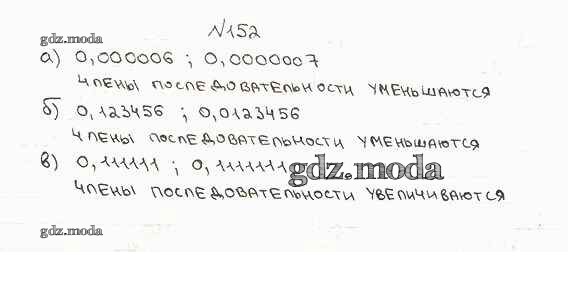 №152
gdz.moda
а) 0,000006 ; 0,0000007
члены последовательности уменьшаются
б) 0,123456 ; 0,0123456
члены последовательности уменьшаются
в) 0,111111 ; 0,1111111 gdz.moda
члены последовательности увеличиваются
gdz.moda